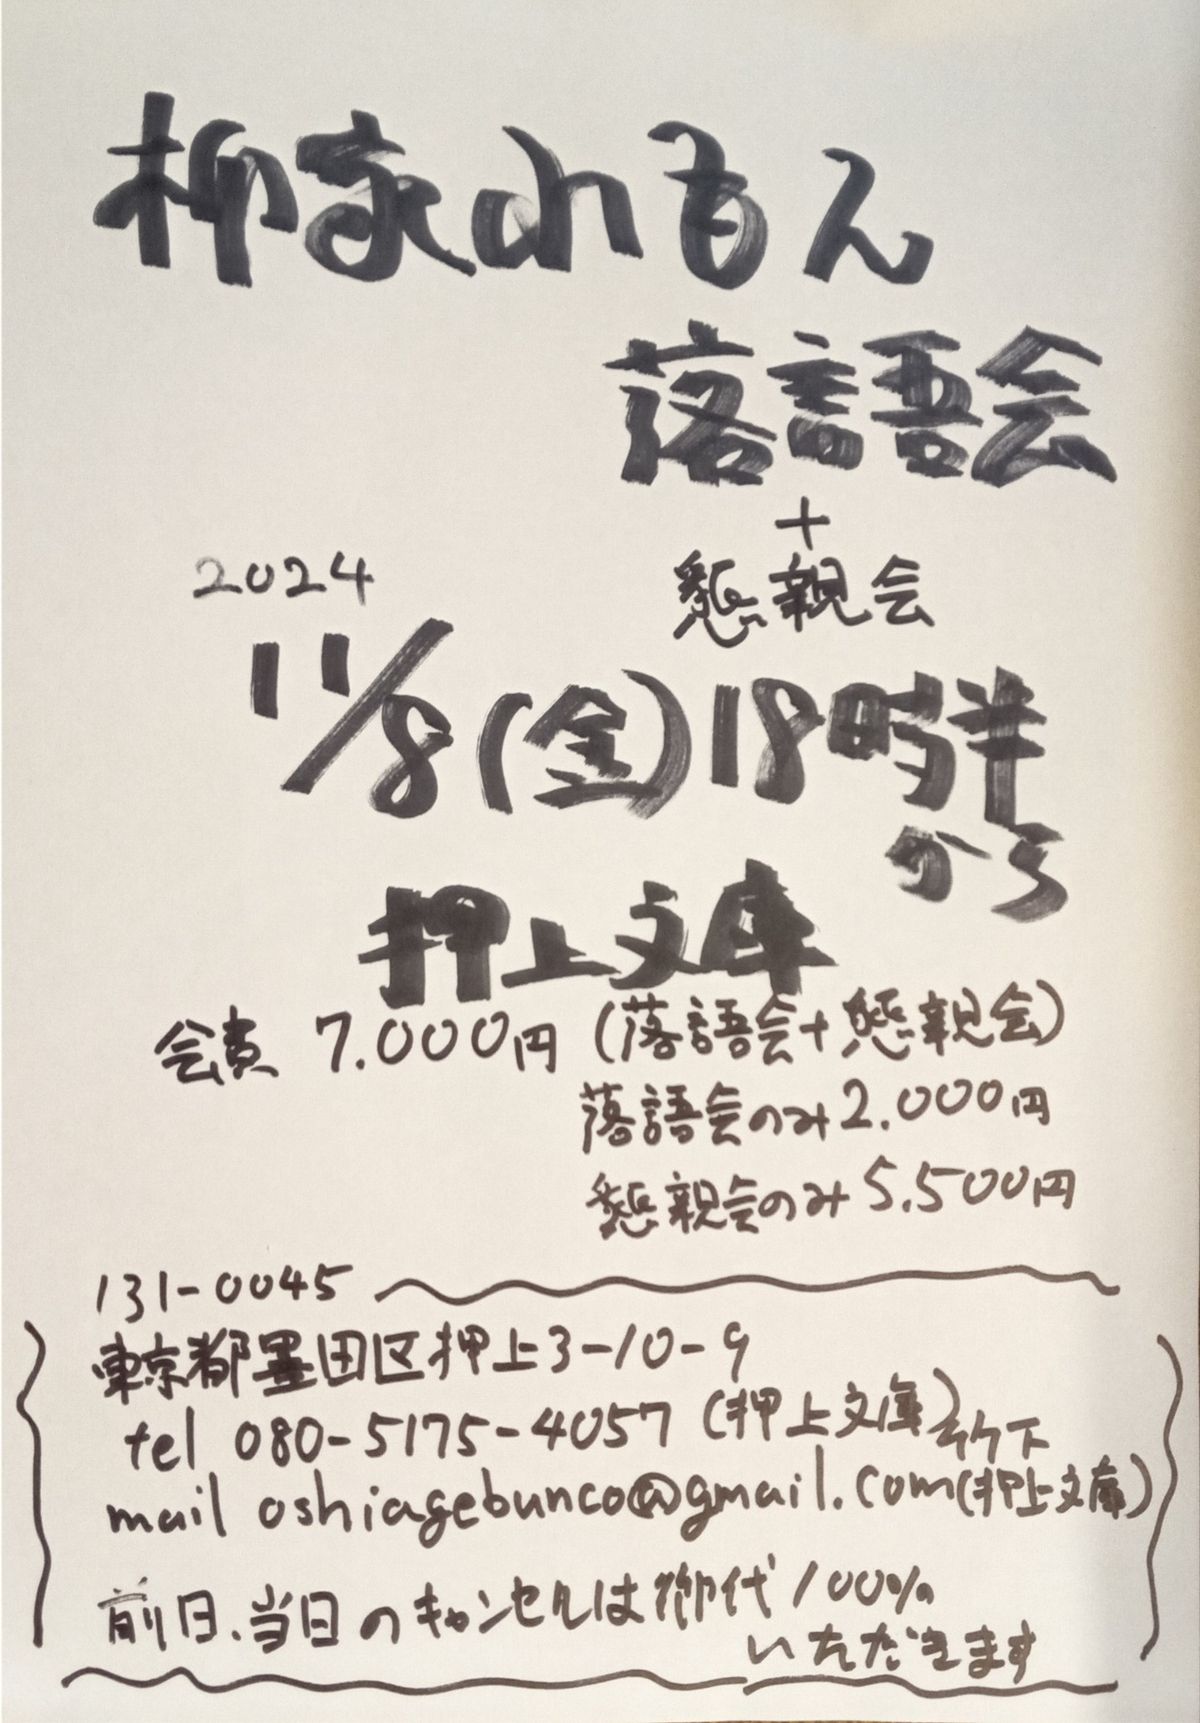 柳家れもん
落語会
+
懇親会
2024
11/8(金)18時半
から
押上文庫
会費 7.000円(落語会+懇親会)
落語会のみ2.000円
懇親会のみ5.500円
131-0045
東京都墨田区押上3-10-9
tel 080-5175-4057(押上文庫)竹下
mail oshiagebunco@gmail.com(押上文庫)
前日、当日のキャンセルは御代100%
いただきます